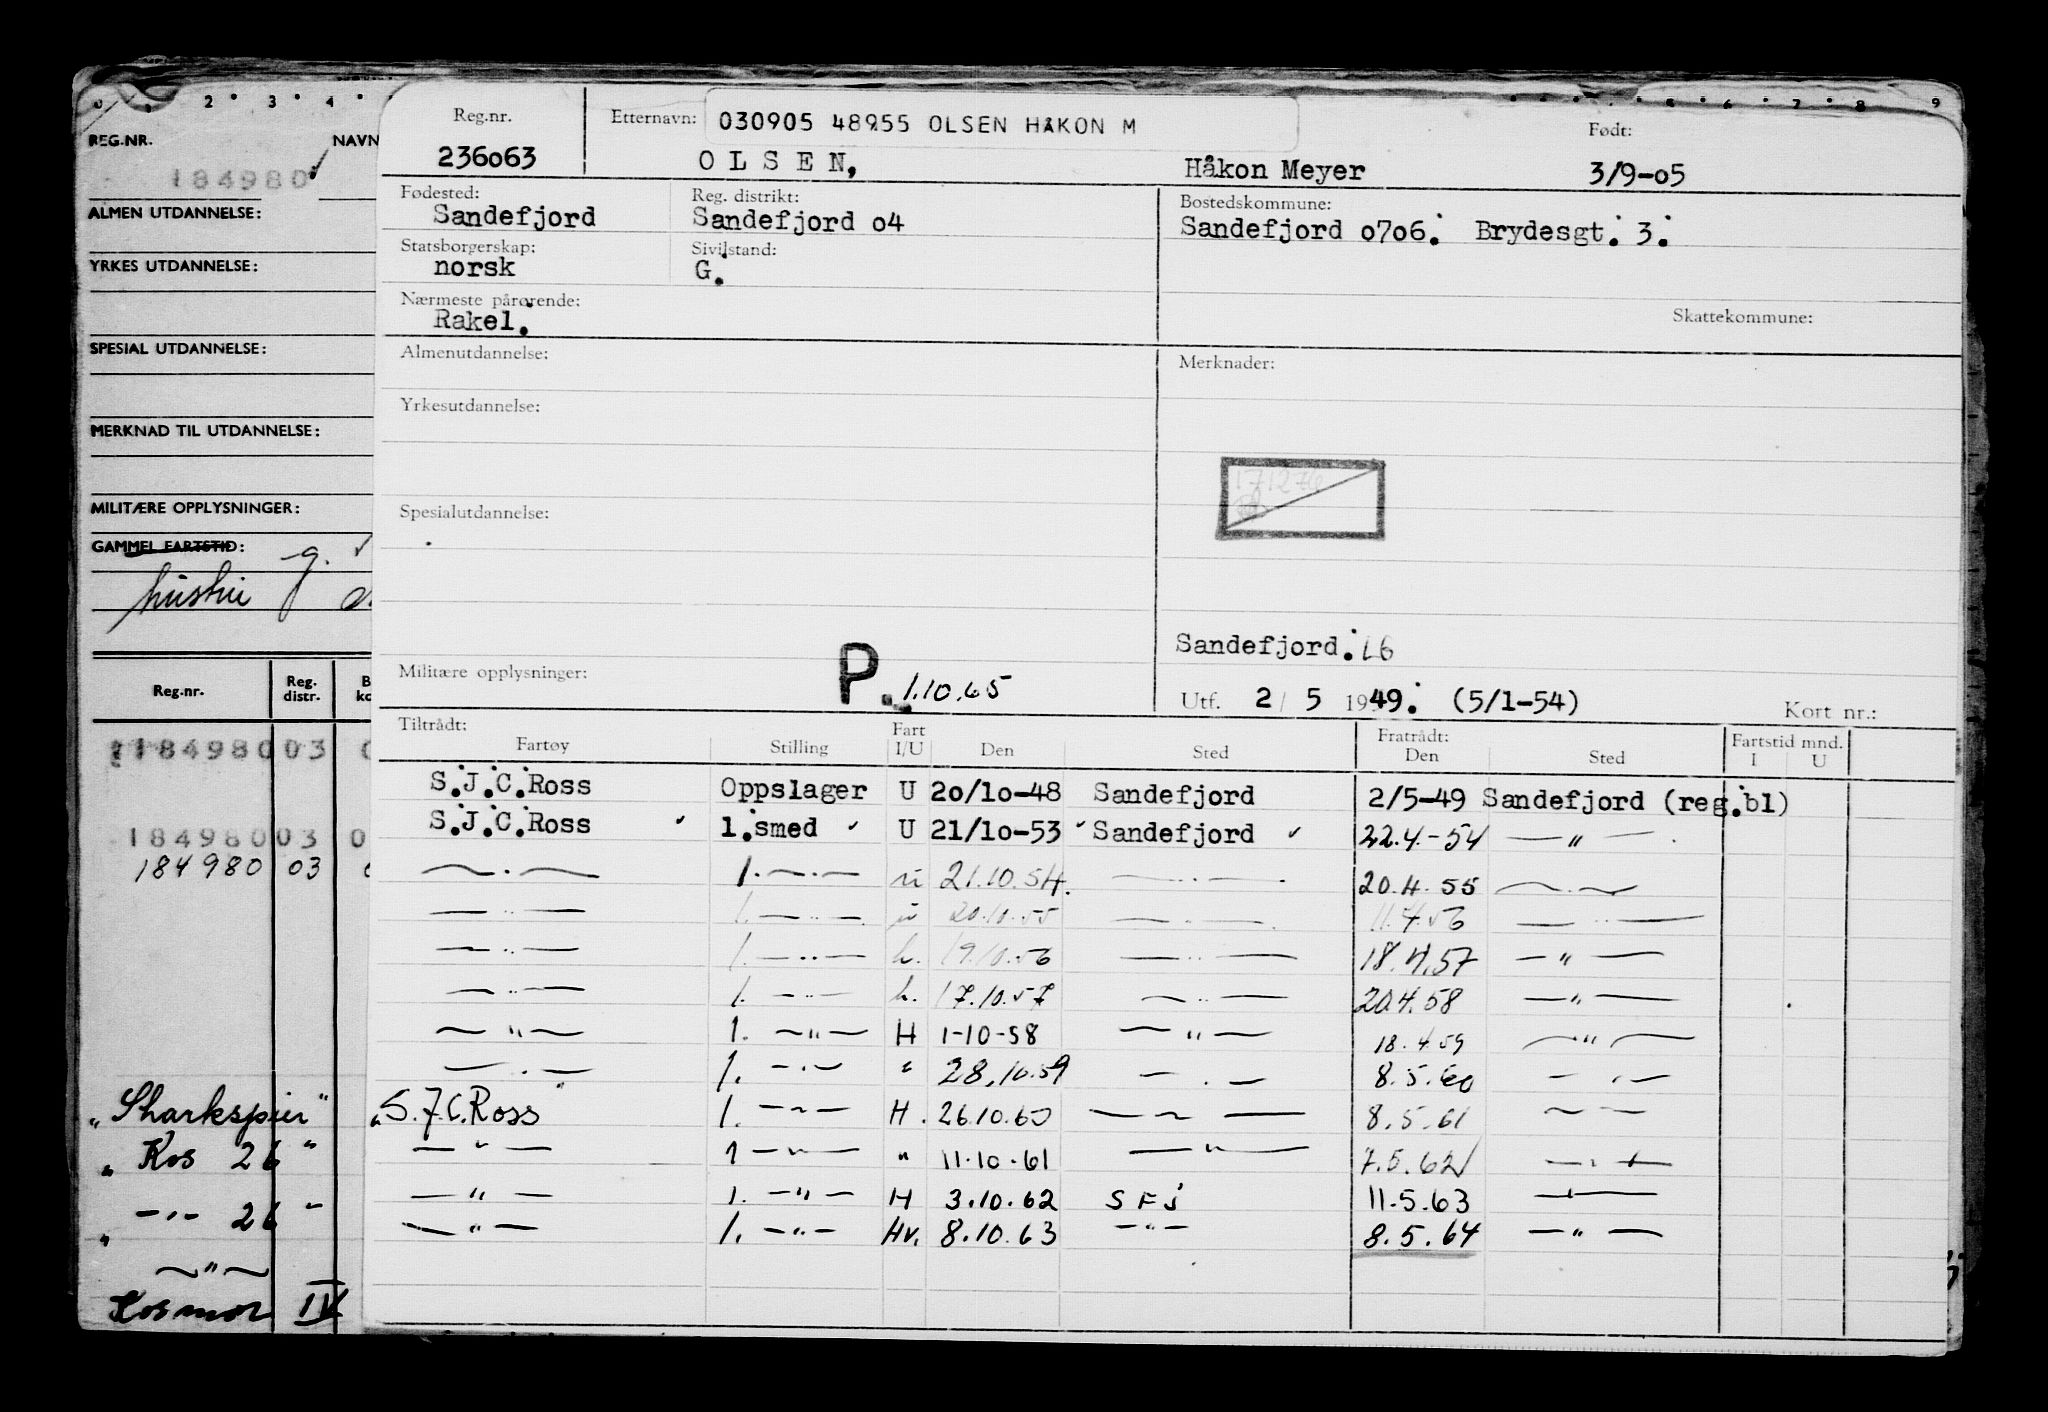 0 1 2 3 4
REG.NR. NAVN
184980
ALMEN UTDANNELSE:
YRKES UTDANNELSE:
SPESIAL UTDANNELSE:
MERKNAD TIL UTDANNELSE:
MILITÆRE OPPLYSNINGER:
GAMMEL FARTSTID: g.
hustru
Reg.nr. Reg. distr.
184980 03
184980 03 0
184980 03
"Sharkspier"
"Kos 26"
" -"- 26 "
~"~
Kosmos IV
5 6 7 8 9
Reg.nr. Etternavn: 030905 48955 OLSEN HÅKON M Født:
236063 OLSEN, Håkon Meyer 3/9-05
Fødested: Reg. distrikt: Bostedskommune:
Sandefjord Sandefjord 04 Sandefjord 0706. Brydesgt. 3.
Statsborgerskap: Sivilstand:
norsk G.
Nærmeste pårørende: Skattekommune:
Rakel.
Almenutdannelse: Merknader:
Yrkesutdannelse:
171276
Spesialutdannelse:
Sandefjord. 26
Militære opplysninger: P. 1.10.65
Utf. 2/5 1949. (5/1-54) Kort nr.:
Tiltrådt: Fart Fratrådt: Fartstid mnd.
Fartøy Stilling I/U Den Sted Den Sted I U
S.J.C.Ross Oppslager U 20/10-48 Sandefjord 2/5-49 Sandefjord (reg.bl)
S.J.C.Ross 1.smed U 21/10-53 Sandefjord 22.4-54 —"—
—.— 1.—.— u 21.10.54. —..— 20.4.55 —..—
—..— 1.—..— u 20.10.55 —..— 11.4.56 —..—
—..— 1.—..— h. 19.10.56 —..— 18.4.57 —"—
—..— 1.—..— h. 17.10.57 —..— 20.4.58 —"—
—"— 1.—"— H 1-10-58 —"— 18.4.59 —"—
—.— 1.—.— " 28.10.59 —.— 8.5.60 —..—
"S.J.C.Ross" 1.—~— H. 26.10.60 —~— 8.5.61 —~—
—"— 1—"— " 11.10.61 —"— 7.5.62 —.—
—"— 1.—"— H 3.10.62 SFJ 11.5.63 —
—"— 1.—"— Hv. 8.10.63 —"— 8.5.64 —"—